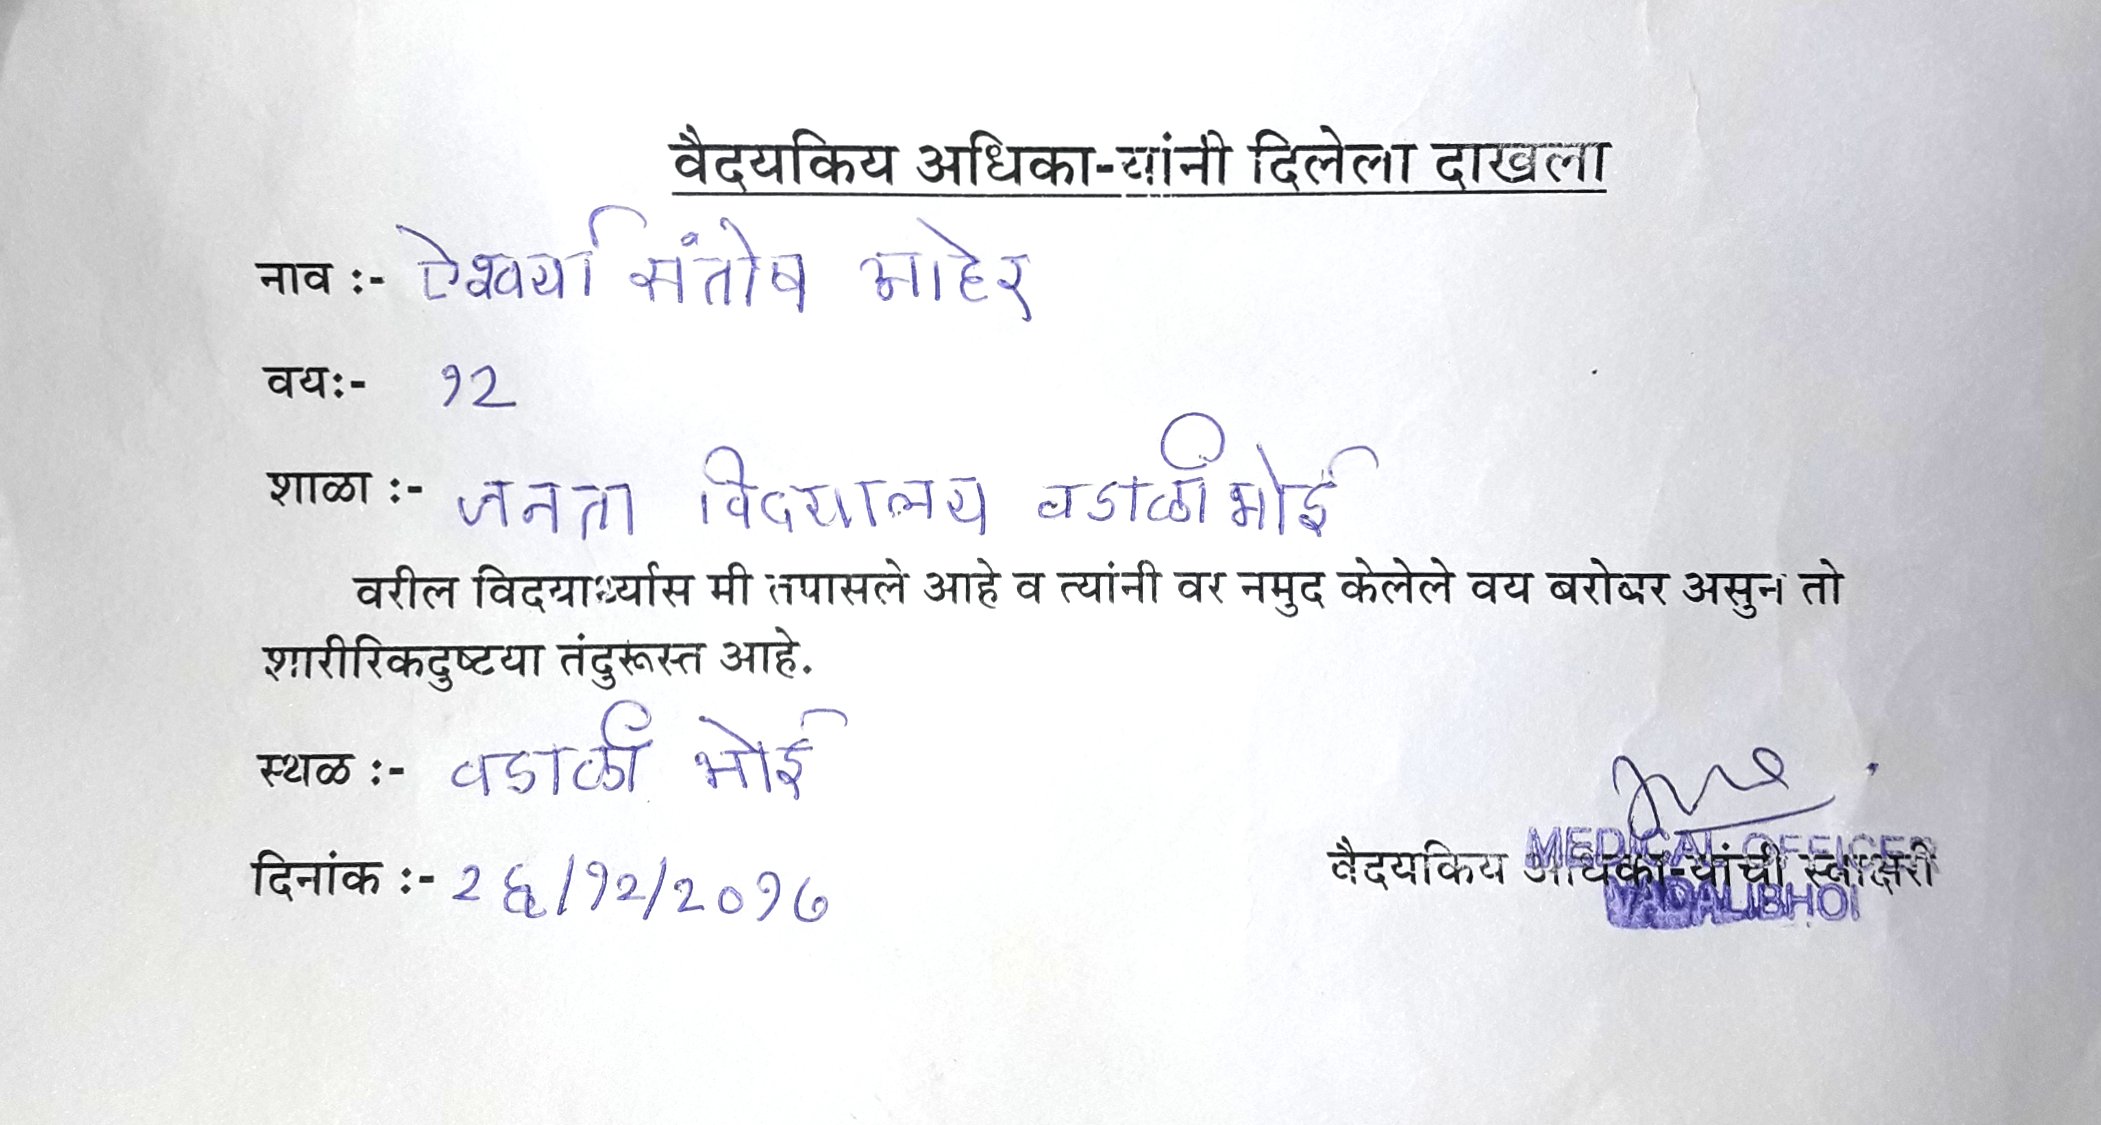 वैदयकिय अधिका-यांनी दिलेला दाखला
नाव :- ऐश्वर्या संतोष आहेर
वय:- १२
शाळा :- जनता विदयालय वडाळीभोई
वरील विदयार्थ्यास मी तपासले आहे व त्यांनी वर नमुद केलेले वय बरोबर असुन तो
शारीरिकदुष्टया तंदुरूस्त आहे.
स्थळ :- वडाळी भोई
दिनांक :- २६/१२/२०१७
MEDICAL OFFICER
वैदयकिय अधिका-यांची स्वाक्षरी
VADALIBHOI